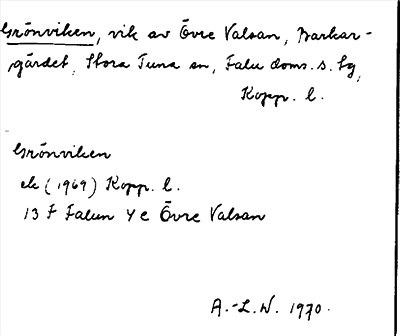 Grönviken, vik av Övre Valsan, Barkar-
gärdet, Stora Tuna sn, Falu doms. s. lg,
Kopp. l.
Grönviken
ek (1969) Kopp. l.
13 F Falun 4 e Övre Valsan
A.-L.W. 1970.